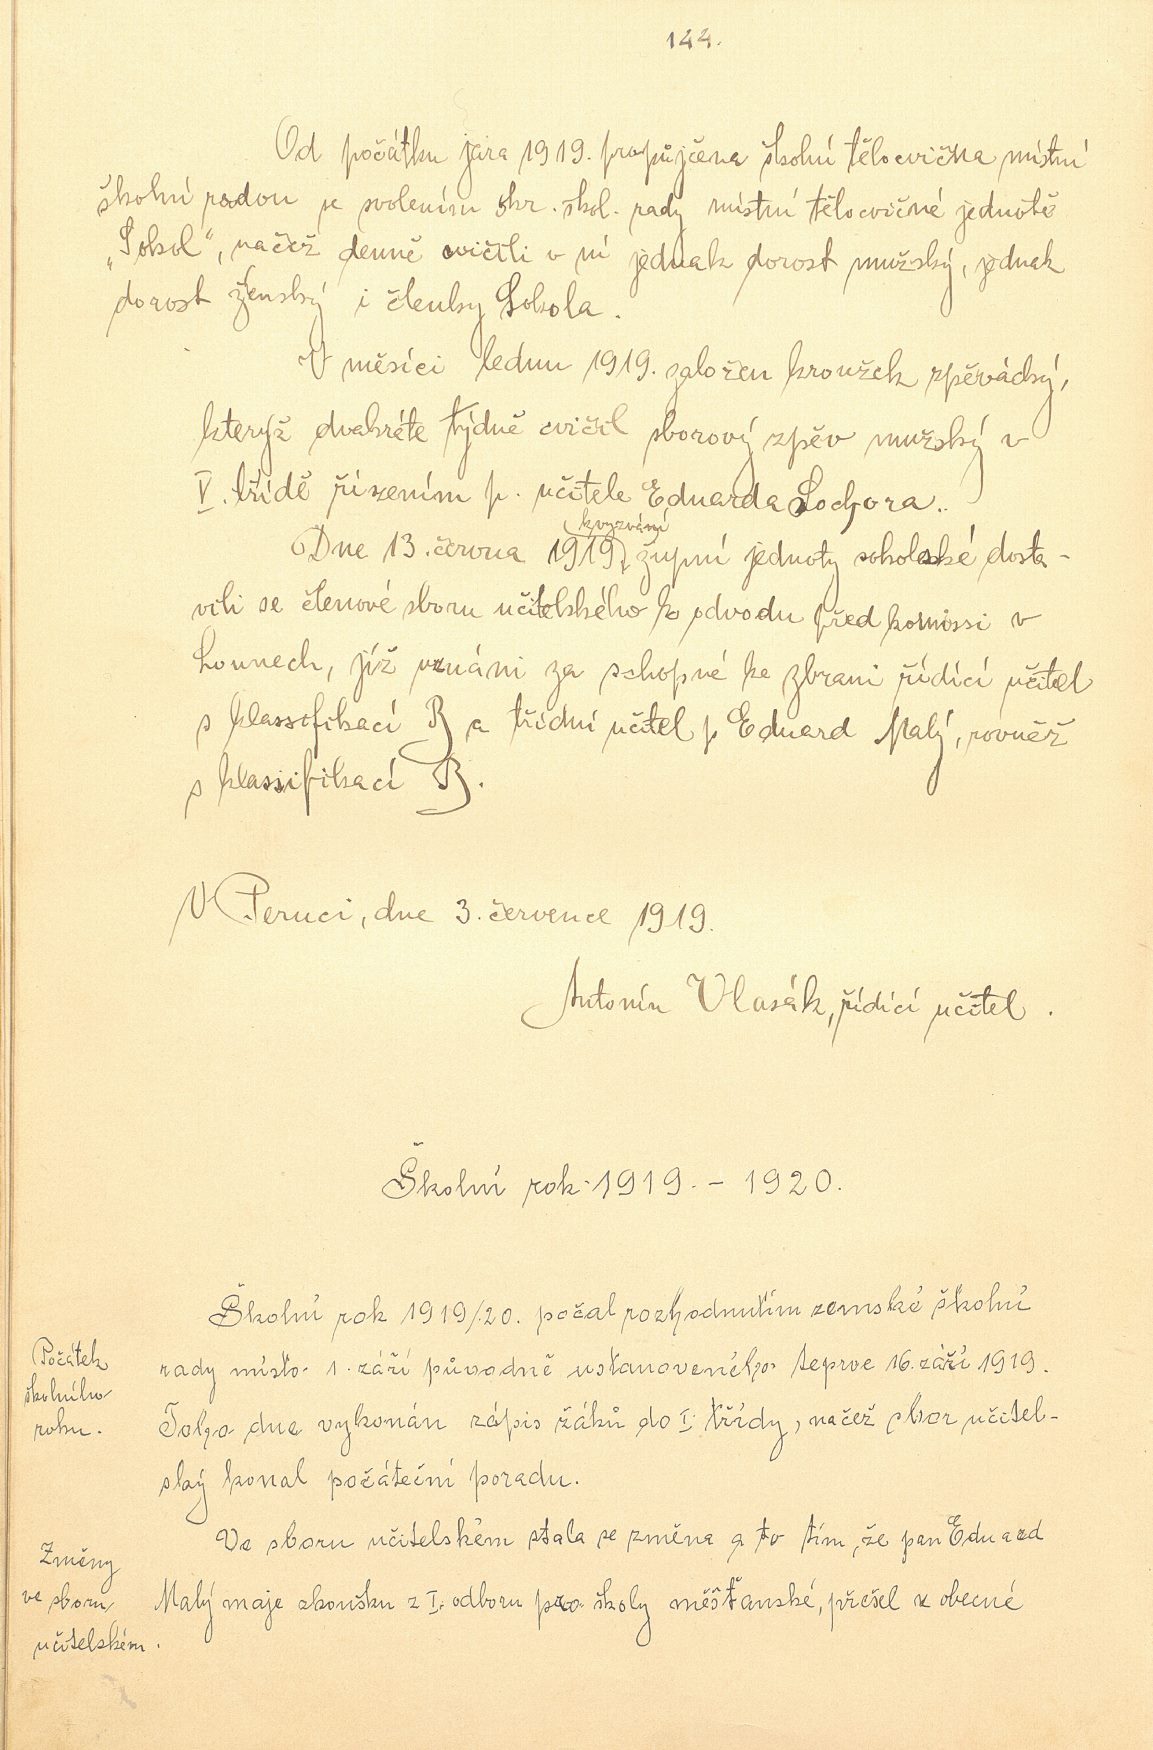 144.
Od počátku jara 1919. propůjčena školní tělocvična místní
školní radou se svolením okr. škol. rady místní tělocvičné jednotě
„Sokol“, načež denně cvičili v ní jednak dorost mužský, jednak
dorost ženský i členky Sokola.
V měsíci lednu 1919. založen kroužek zpěvácký,
kterýž dvakráte týdně cvičil sborový zpěv mužský v
V. třídě řízením p. učitele Eduarda Lochora.
k vyzvání
Dne 13. června 1919, župní jednoty sokolské dosta-
vili se členové sboru učitelského ko odvodu před komissi v
Lounech, jíž uznáni za schopné ke zbrani řídící učitel
s klassifikací B a třídní učitel p Eduard Malý, rovněž
s klassifikací B.
V Peruci, dne 3. července 1919.
Antonín Vlasák, řídící učitel.
Školní rok 1919. – 1920.
Školní rok 1919/20. počal rozhodnutím zemské školní
Počátek
rady místo 1. září původně ustanoveného teprve 16. září 1919.
školního
roku.
Toho dne vykonán zápis žáků do I. třídy, načež sbor učitel-
ský konal počáteční poradu.
Ve sboru učitelském stala se změna a to tím, že pan Eduard
Změny
ve sboru
Malý maje zkoušku z I. odboru pro školy měšťanské, přešel z obecné
učitelském.